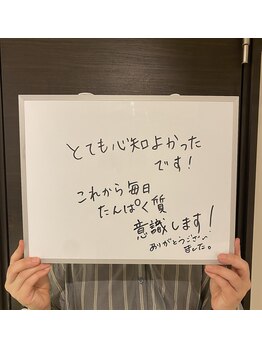 とても心知よかった
です!
これから毎日
たんぱく質
意識します!
ありがとうござい
ました。